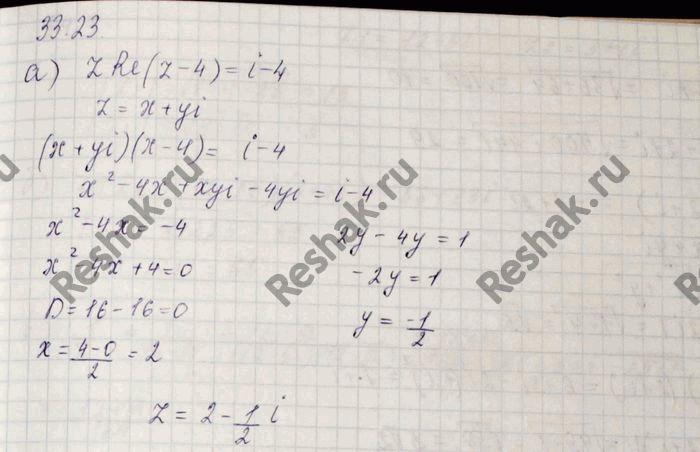 33.23.
а) z Re(z-4) = i-4
z = x+yi
(x+yi)(x-4) = i-4
x²-4x+xyi-4yi = i-4
x²-4x = -4
x²-4x+4=0
D=16-16=0
x = (4-0)/2 = 2
2y-4y=1
-2y=1
y = -1/2
z = 2 - 1/2 i
Reshak.ru
Reshak.ru
Reshak.ru